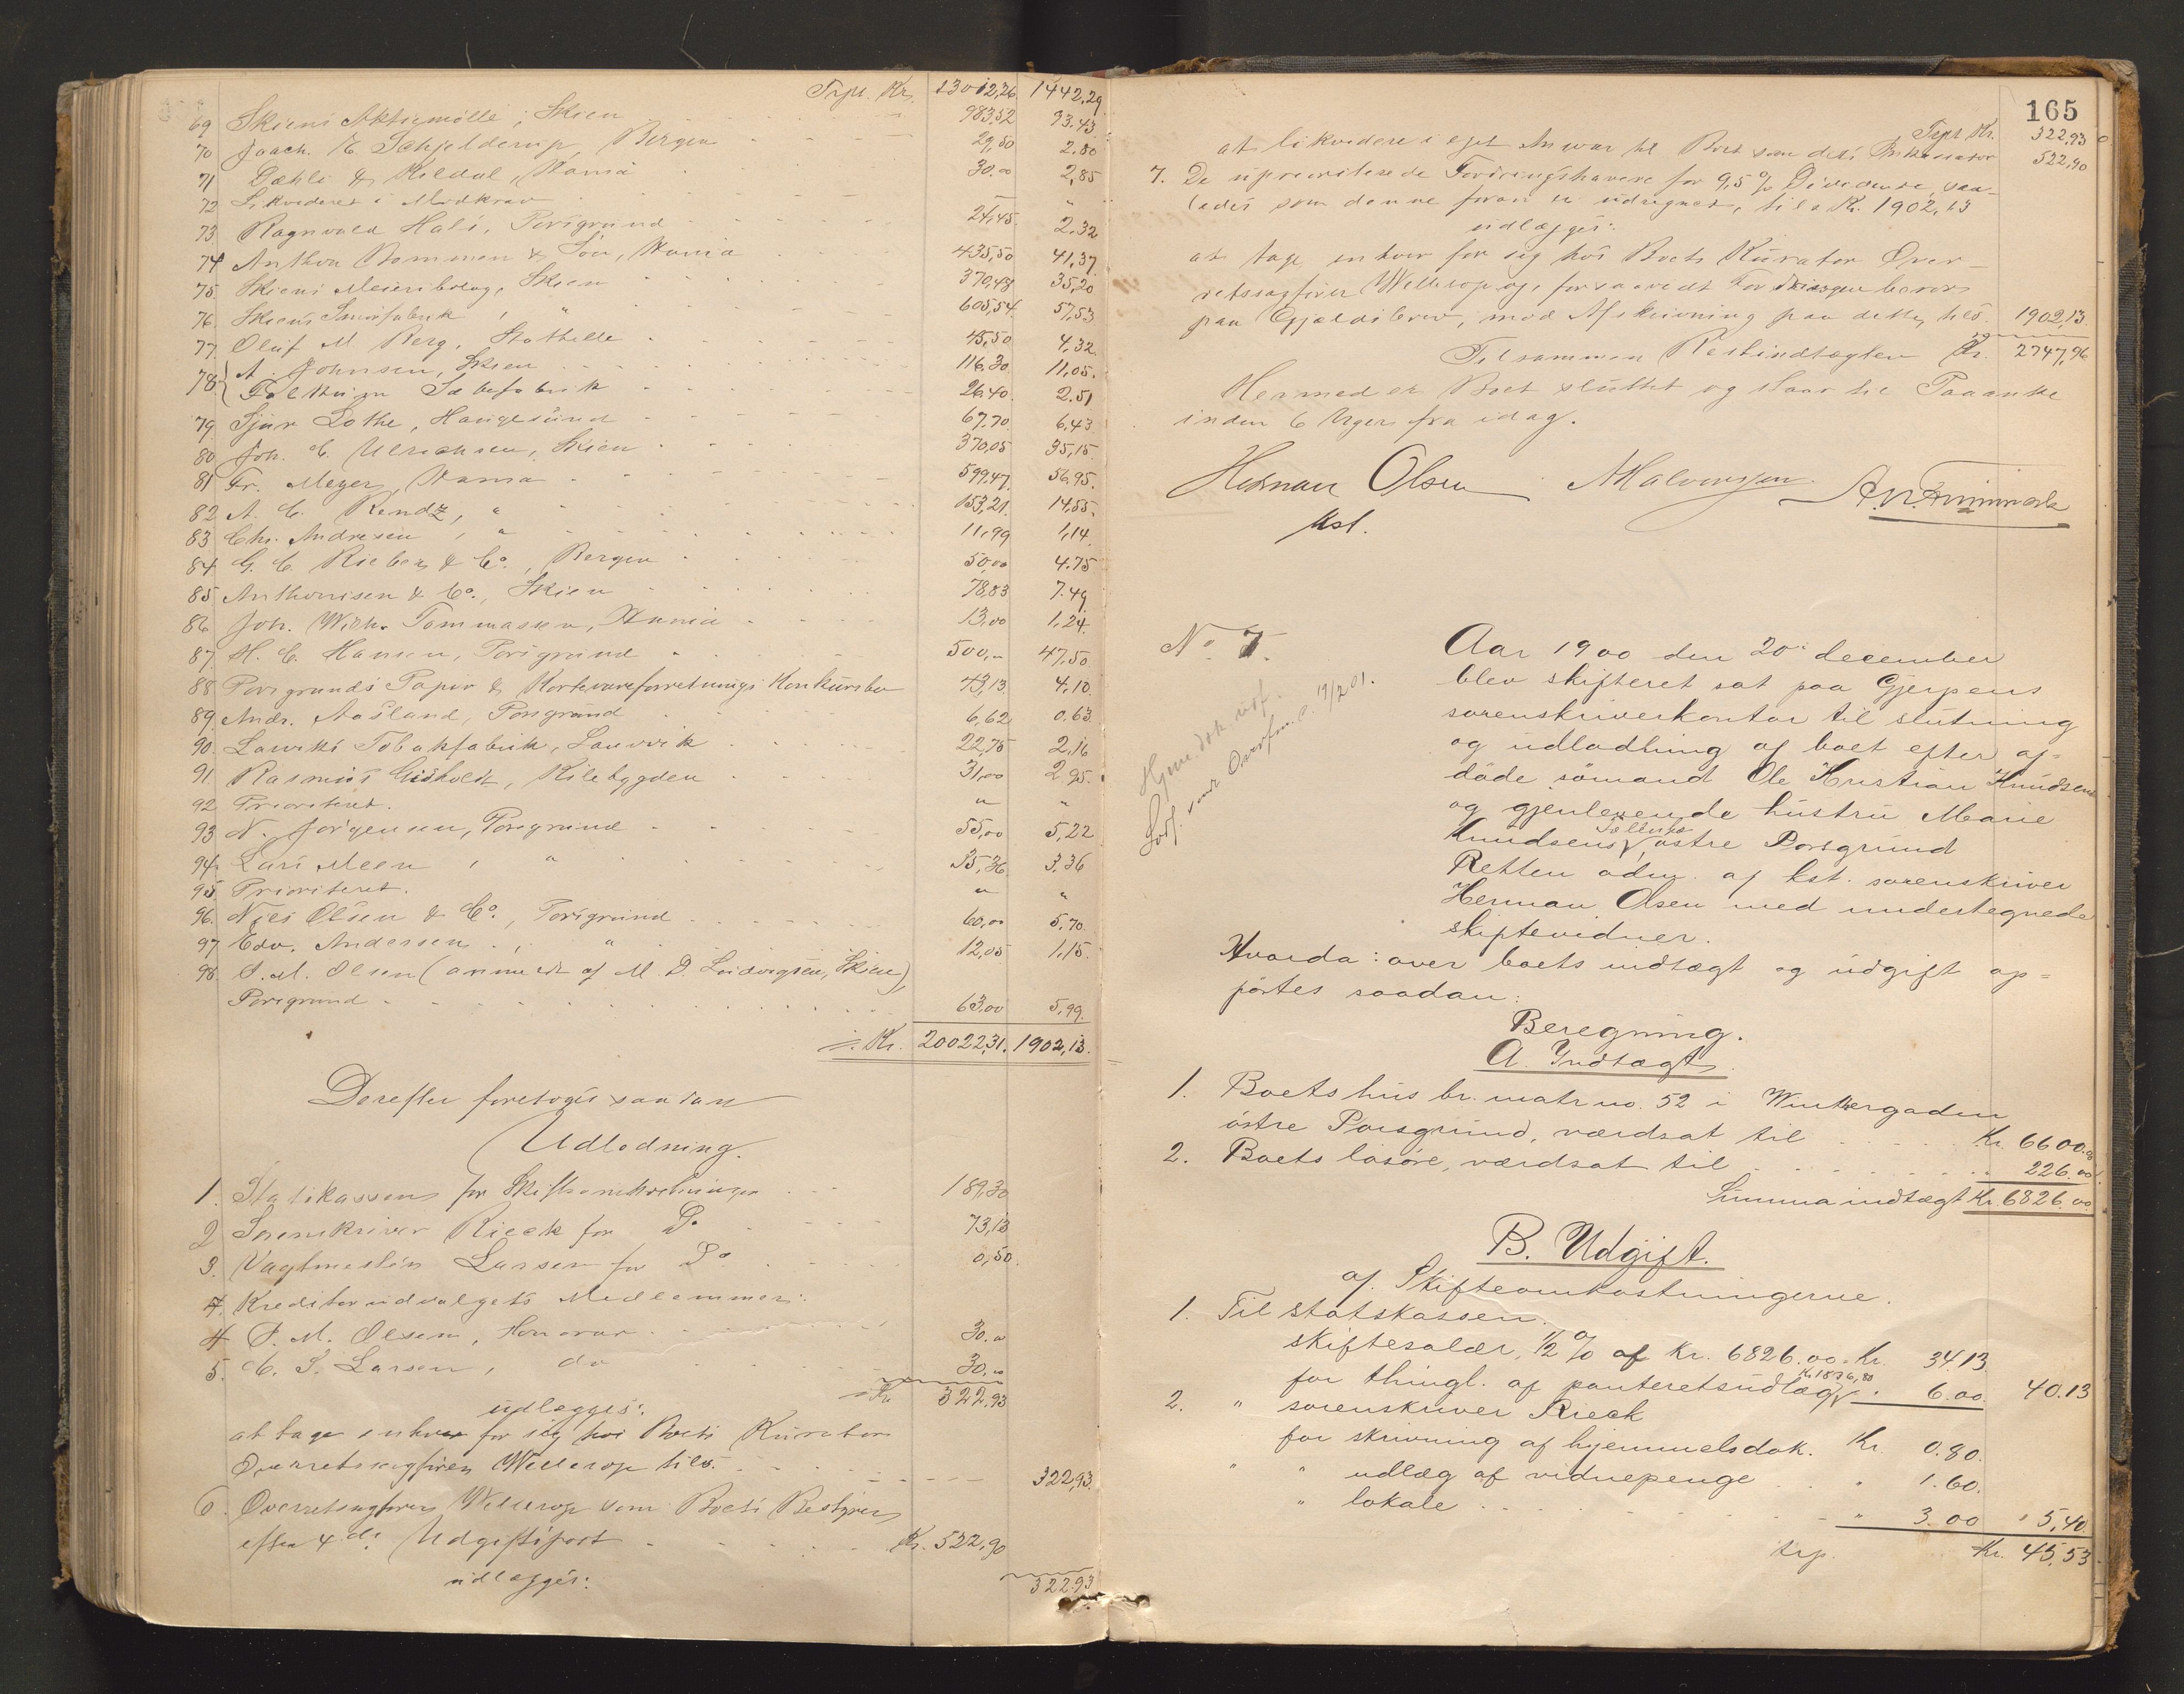 Trpt. Kr. 13012,26. 1442,29
69 Skiens Aktiemølle, Skien 983,52 93.43
70 Joach. E. Schjelderup, Bergen 29,50 2.80
71 Dæhli & Kildal, Krania 30.00 2,85
72 Likvideret i Modkrav "
73 Ragnvald Hals, Porsgrund 24,45. 2.32
74 Anthon Bommen & Søn, Krania 435,50 41,37
75 Skiens Meieribolag, Skien 370,48 35,20
76. Skiens Smørfabrik, " 605,54. 57,53
77. Oluf M Berg, Stathelle 45,50 4,32
78 A. Johnsen, Skien 116,30 11,05.
Sæbefabrik 26,40. 2.51
79. Sjur Lothe, Haugesund 67,70. 6,43
80. Joh. C. Ulrichsen, Skien 370,05 35,15
81 Fr. Meyer, Krania 599,47 56,95.
82 A. C. Rendz, " 153,21. 14,55.
83 Chr. Andresen, " 11,99 1,14
84 G. C. Rieber & Co., Bergen 50,00 4.75
85 Anthonisen & Co., Skien 78,83 7.49
86 Joh. Wilh. Tommassen, Krania 13,00 1,24.
87. H. C. Hansen, Porsgrund 500,- 47,50
88 Porsgrunds Papir & Kortevareforretnings Konkursbo 43,13. 4.10.
89. Andr. Aasland, Porsgrund 6,62 0.63
90. Laurviks Tobakfabrik, Laurvik 22,75 2,16
91. Rasmus Gisholdt, Kilebygden 31,00 2.95.
92 Prioriteret. " "
93. N. Jørgensen, Porsgrund 55,00 5,22
94. Lars Meen, " 35,36. 3,36
95. Prioriteret. " "
96. Nils Olsen & Co., Porsgrund 60,00 5.70
97 Edv. Andersen, " 12,05 1,15.
98. P. M. Olsen (anmeldt af M. D. Ludvigsen, Skien),
Porsgrund 63,00 5,99.
Kr. 20022,31. 1902,13.
Derefter foretoges saadan
Udlodning.
1. Statskassen for Skifteomkostninger 189,30
2 Sorenskriver Rieck for Do 73,13
3. Vagtmester Larsen for Do 0,50.
4. Kreditorudvalgets Medlemmer:
4 P. M. Olsen, Honorar 30.00
5. C. P. Larsen, do 30,00
Kr 322,93
udlægges:
at tage enhver for sig hos Boets Kurator
Overretssagfører Wellerop tils. 322,93.
6. Overretssagfører Wellerop som Boets Bestyrer
efter 4de Udgiftspost Kr. 522,90
udlægges:
322.93
165
Trpt Kr. 322,93
at likvidere i eget Ansvar til Boet som dets Inkassator 522,90
7. De uprioriterede Fordringshavere for 9,5 % Dividende, saa-
ledes som denne foran er udregnet, tils Kr. 1902,13
udlægges:
at tage enhver for sig hos Boets Kurator Over-
retssagfører Wellerop, forsaavidt Fordringen beror
paa Gjældsbrev, mod Afskrivning paa dette, tils. 1902,13.
Tilsammen Restindtægten Kr. 2747,96
Hermed er Boet sluttet og staar til Paaanke
inden 6 Uger fra idag.
Herman Olsen
kst.
AHalvorsen
A. N. Finmark
No 7.
Hjem.dok. udf.
19/2 01.
Aar 1900 den 20. december
blev skifteret sat paa Gjerpens
sorenskriverkontor til slutning
og udlodning af boet efter af-
døde sømand Ole Kristian Knudsen
og gjenlevende hustru Marie
Knudsens fælles, østre Porsgrund
Retten adm. af kst. sorenskriver
Herman Olsen med undertegnede
skiftevidner.
Hvorda: over boets indtægt og udgift op-
førtes saadan:
Beregning.
A. Indtægt.
1. Boets hus br. matr no. 52 i Winthergaden
østre Porsgrund, værdsat til Kr. 6600.00
2. Boets løsøre, værdsat til " 226.00.
Summa indtægt Kr. 6826.00
B. Udgift.
a/ Skifteomkostningerne.
1. Til statskassen.
skiftesalær, 1/2 % af kr. 6826.00. Kr. 34.13
for thingl. af panteretsudlæg kr 1836,80 " 6.00. 40.13
2. " sorenskriver Rieck
for skrivning af hjemmelsdok. Kr. 0.80.
" " udlæg af vidnepenge " 1.60.
" lokale " 3.00 " 5,40.
trp. Kr. 45.53